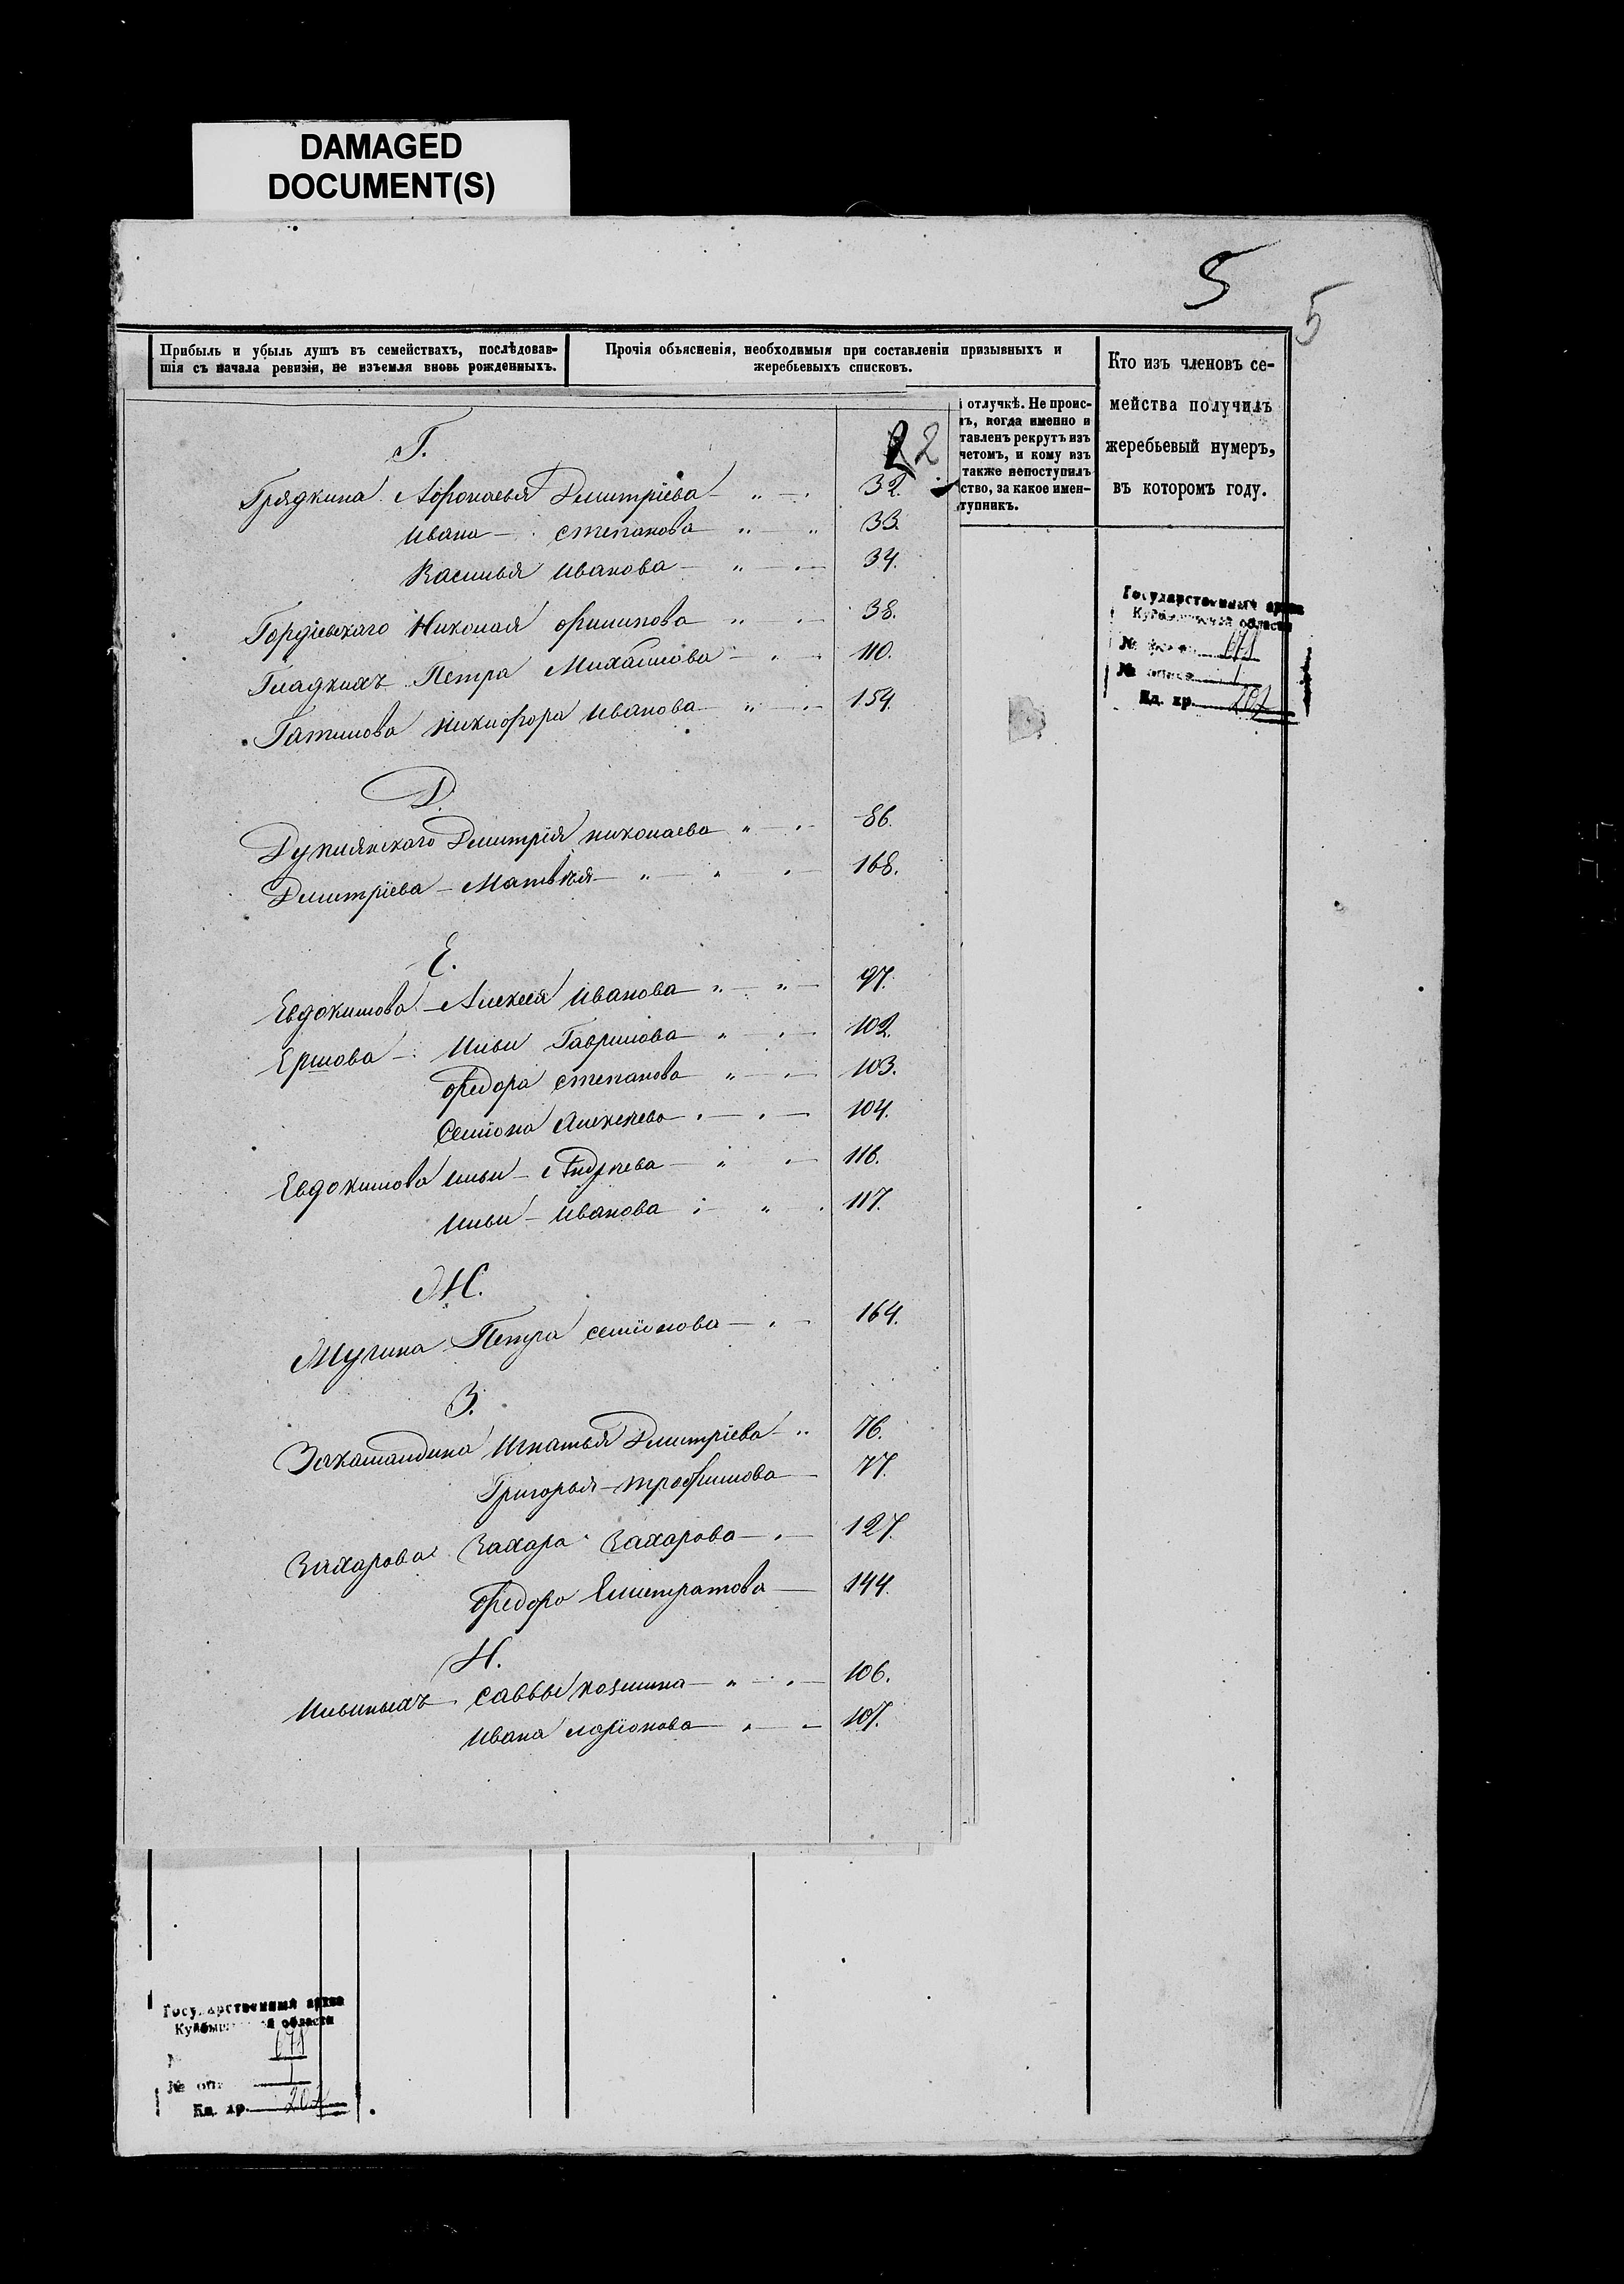 DAMAGED
DOCUMENT(S)
5
5
Прибыль и убыль душъ въ семействахъ, послѣдовав-
шія съ начала ревизіи, не изъемля вновь рожденныхъ.
Прочія объясненія, необходимыя при составленіи призывныхъ и
жеребьевыхъ списковъ.
Кто изъ членовъ се-
мейства получилъ
жеребьевый нумеръ,
въ которомъ году.
отлучкѣ. Не проис-
ъ, когда именно и
тавленъ рекрутъ изъ
четомъ, и кому изъ
также непоступилъ
ство, за какое имен-
тупникъ.
22
Г.
Грядкина Афонасья Дмитріева 32.
Ивана Степанова 33.
Василья Иванова 34.
Гордіевскаго Николая Филипова 38.
Гладкихъ Петра Михайлова 110.
Никифора Иванова 154.
Д.
Дмитрія Николаева 86.
Дмитріева Матвѣя 168.
Е.
Евдокимова Алексѣя Иванова 97.
Ершова Ильи Гаврилова 102.
Федора Степанова 103.
Семіона Алексѣева 104.
Евдокимова Ильи Андрѣева 116.
Ильи Иванова 117.
Ж.
Петра Семіонова 164.
З.
Игнатья Дмитріева 76.
Григорья Трофимова 77.
Захарова Захара Захарова 127.
Федора Елистратова 144.
И.
Ильиныхъ Саввы Козмина 106.
Ивана Ларіонова 107.
Государственный архив
Куйбышевской области
671
1
Ед. хр. 207
Государственный архив
Куйбышевской области
671
№ оп. 1
Ед. хр. 207